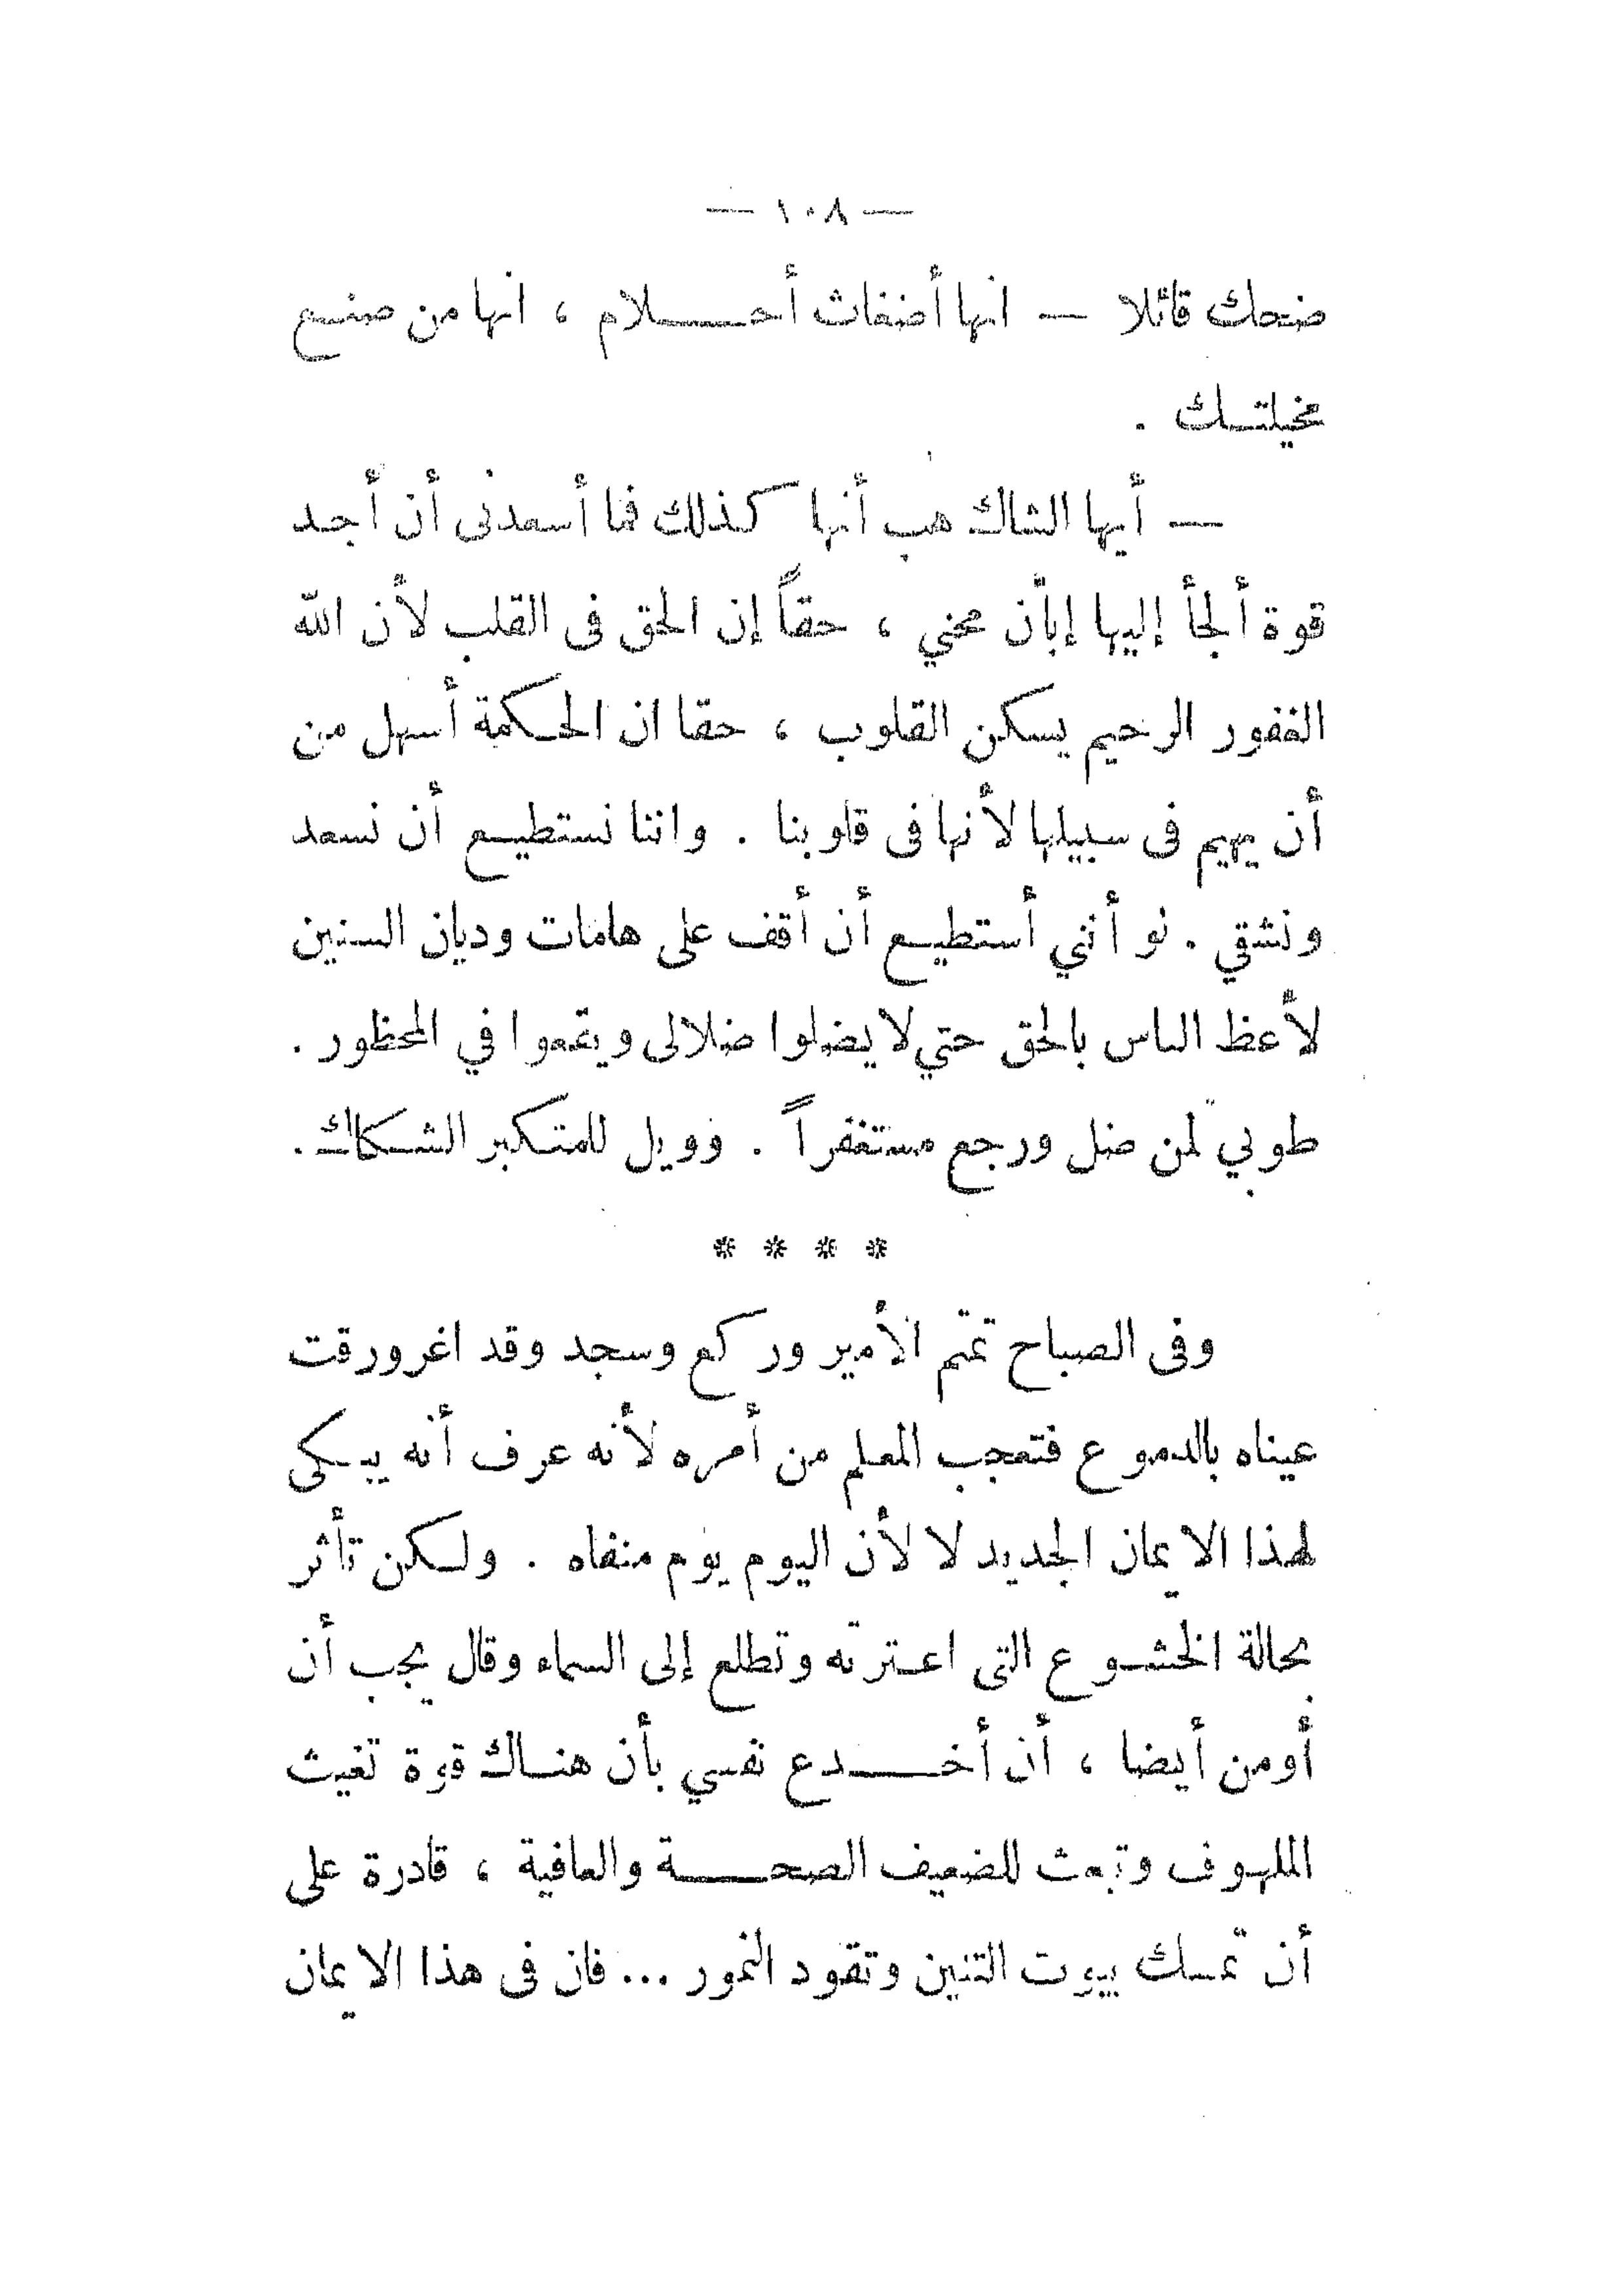 — ١٠٨ —
ضحك قائلا — انها أضغاث أحـــلام ، انها من صنع
مخيلتك .
— أيها الشاك هب أنها كذلك فما أسعدنى أن أجد
قوة ألجأ إليها إبّأن محني ، حقاً إن الحق فى القلب لأن الله
الغفور الرحيم يسكن القلوب ، حقا ان الحكمة أسهل من
أن يهيم فى سبيلها لأنها فى قلوبنا . واننا نستطيع أن نسعد
ونشقي . لو أنني أستطيع أن أقف على هامات وديان السنين
لأعظ الناس بالحق حتي لا يضلوا ضلالى ويقعوا في المحظور .
طوبي لمن ضل ورجع مستغفراً . وويل للمتكبر الشكاك .
* * * *
وفى الصباح تمتم الأمير وركع وسجد وقد اغرورقت
عيناه بالدموع فتعجب المعلم من أمره لأنه عرف أنه يبكى
لهذا الايمان الجديد لا لأن اليوم يوم منفاه . ولكن تأثر
بحالة الخشوع التى اعترته وتطلع إلى السماء وقال يجب أن
أومن أيضا ، أن أخـــدع نفسي بأن هناك قوة تغيث
الملهوف وتبعث للضعيف الصحـــة والعافية ، قادرة على
أن تمسك بيوت التنين وتقود النمور ... فان فى هذا الايمان